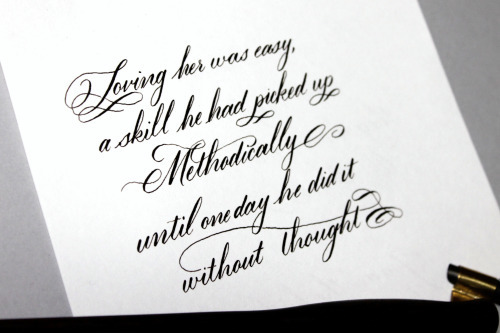 Loving her was easy,
a skill he had picked up
Methodically
until one day he did it
without thought